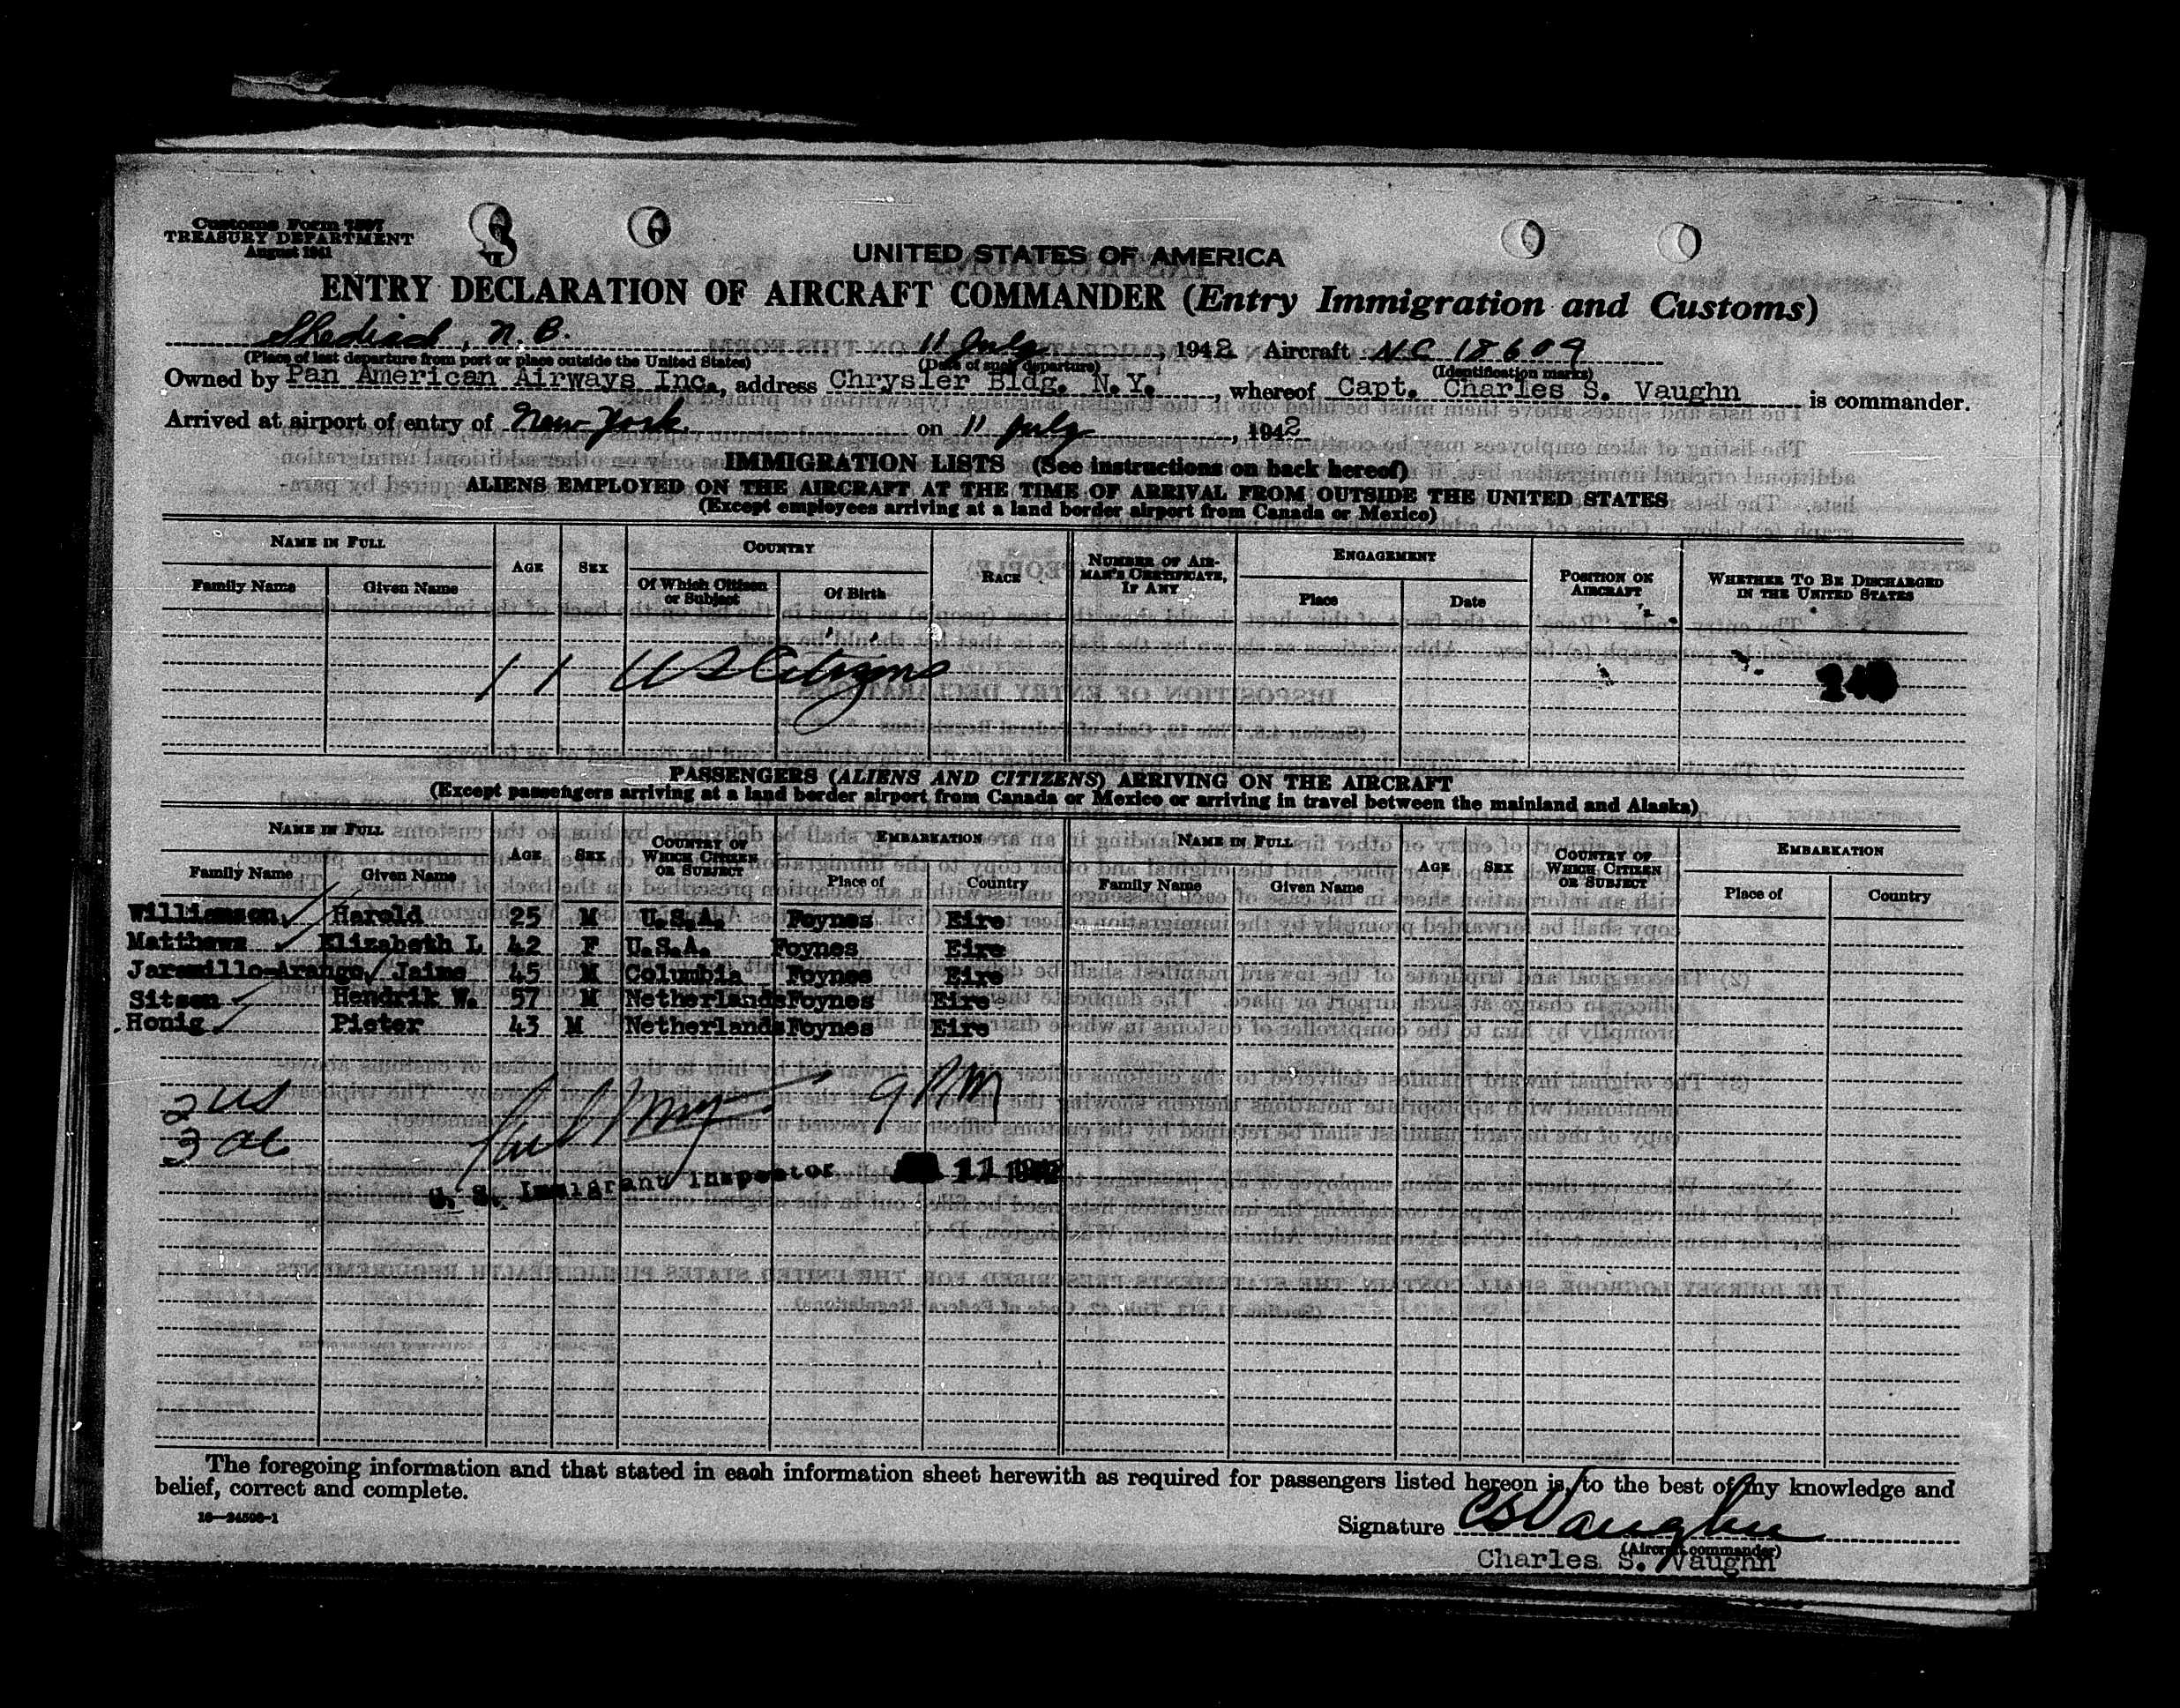 Customs Form 7507
TREASURY DEPARTMENT
August 1941
UNITED STATES OF AMERICA
ENTRY DECLARATION OF AIRCRAFT COMMANDER (Entry Immigration and Customs)
Shediac, N.B. 11 July, 1942 Aircraft NC 18609
(Place of last departure from port or place outside the United States) (Date of such departure) (Identification marks)
Owned by Pan American Airways Inc., address Chrysler Bldg. N.Y., whereof Capt. Charles S. Vaughn is commander.
Arrived at airport of entry of New York on 11 July, 1942
IMMIGRATION LISTS (See instructions on back hereof)
ALIENS EMPLOYED ON THE AIRCRAFT AT THE TIME OF ARRIVAL FROM OUTSIDE THE UNITED STATES
(Except employees arriving at a land border airport from Canada or Mexico)
NAME IN FULL AGE SEX COUNTRY RACE NUMBER OF AIRMAN'S CERTIFICATE, IF ANY ENGAGEMENT POSITION ON AIRCRAFT WHETHER TO BE DISCHARGED IN THE UNITED STATES
Family Name Given Name Of Which Citizen or Subject Of Birth Place Date
11 US Citizens
PASSENGERS (ALIENS AND CITIZENS) ARRIVING ON THE AIRCRAFT
(Except passengers arriving at a land border airport from Canada or Mexico or arriving in travel between the mainland and Alaska)
NAME IN FULL AGE SEX COUNTRY OF WHICH CITIZEN OR SUBJECT EMBARKATION NAME IN FULL AGE SEX COUNTRY OF WHICH CITIZEN OR SUBJECT EMBARKATION
Family Name Given Name Place of Country Family Name Given Name Place of Country
Williamson Harold 25 M U.S.A. Foynes Eire
Matthews Elizabeth L 42 F U.S.A. Foynes Eire
Jaramillo-Arango, Jaime 45 M Columbia Foynes Eire
Sitsen Hendrik W. 57 M Netherlands Foynes Eire
Honig Pieter 43 M Netherlands Foynes Eire
2 US
3 al
9 PM
U. S. Immigrant Inspector 11 1942
The foregoing information and that stated in each information sheet herewith as required for passengers listed hereon is, to the best of my knowledge and
belief, correct and complete.
16—24500-1
Signature CS Vaughn
(Aircraft commander)
Charles S. Vaughn